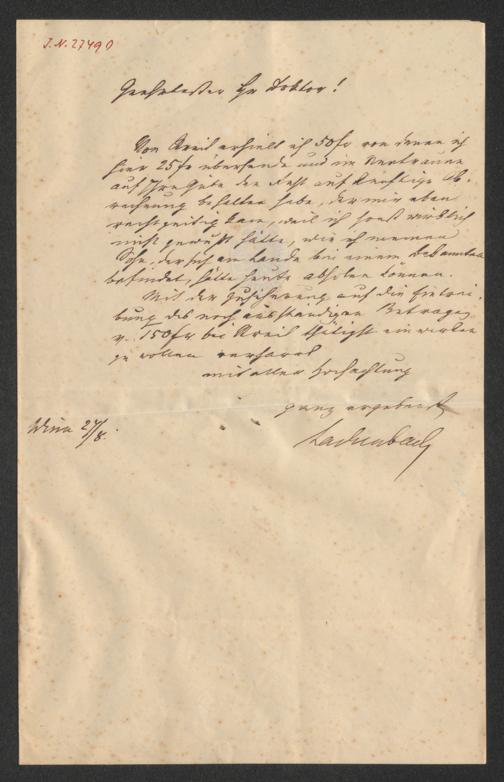 J. N. 27490
Geehrtester Hr Doktor!
Von Kreil erhielt ich 50fr von denen ich
hier 25fr übersende und im Vertrauen
auf Ihre Güte den Rest auf künftige Ab-
rechnung behalten habe, der mir eben
recht zeitig kam, weil ich sonst wirklich
nicht gewußt hätte, wie ich meinen
Sohn, der sich am Lande bei einem Bekannten
befindet, hätte heute abholen können.
Mit der Zusicherung auf die Eintrei-
bung des noch ausständigen Betrages
v. 150fr bei Kreil thätigst einwirken
zu wollen verharrt
mit aller Hochachtung
ganz ergebenst
Lachenbach
Wien 27/8.